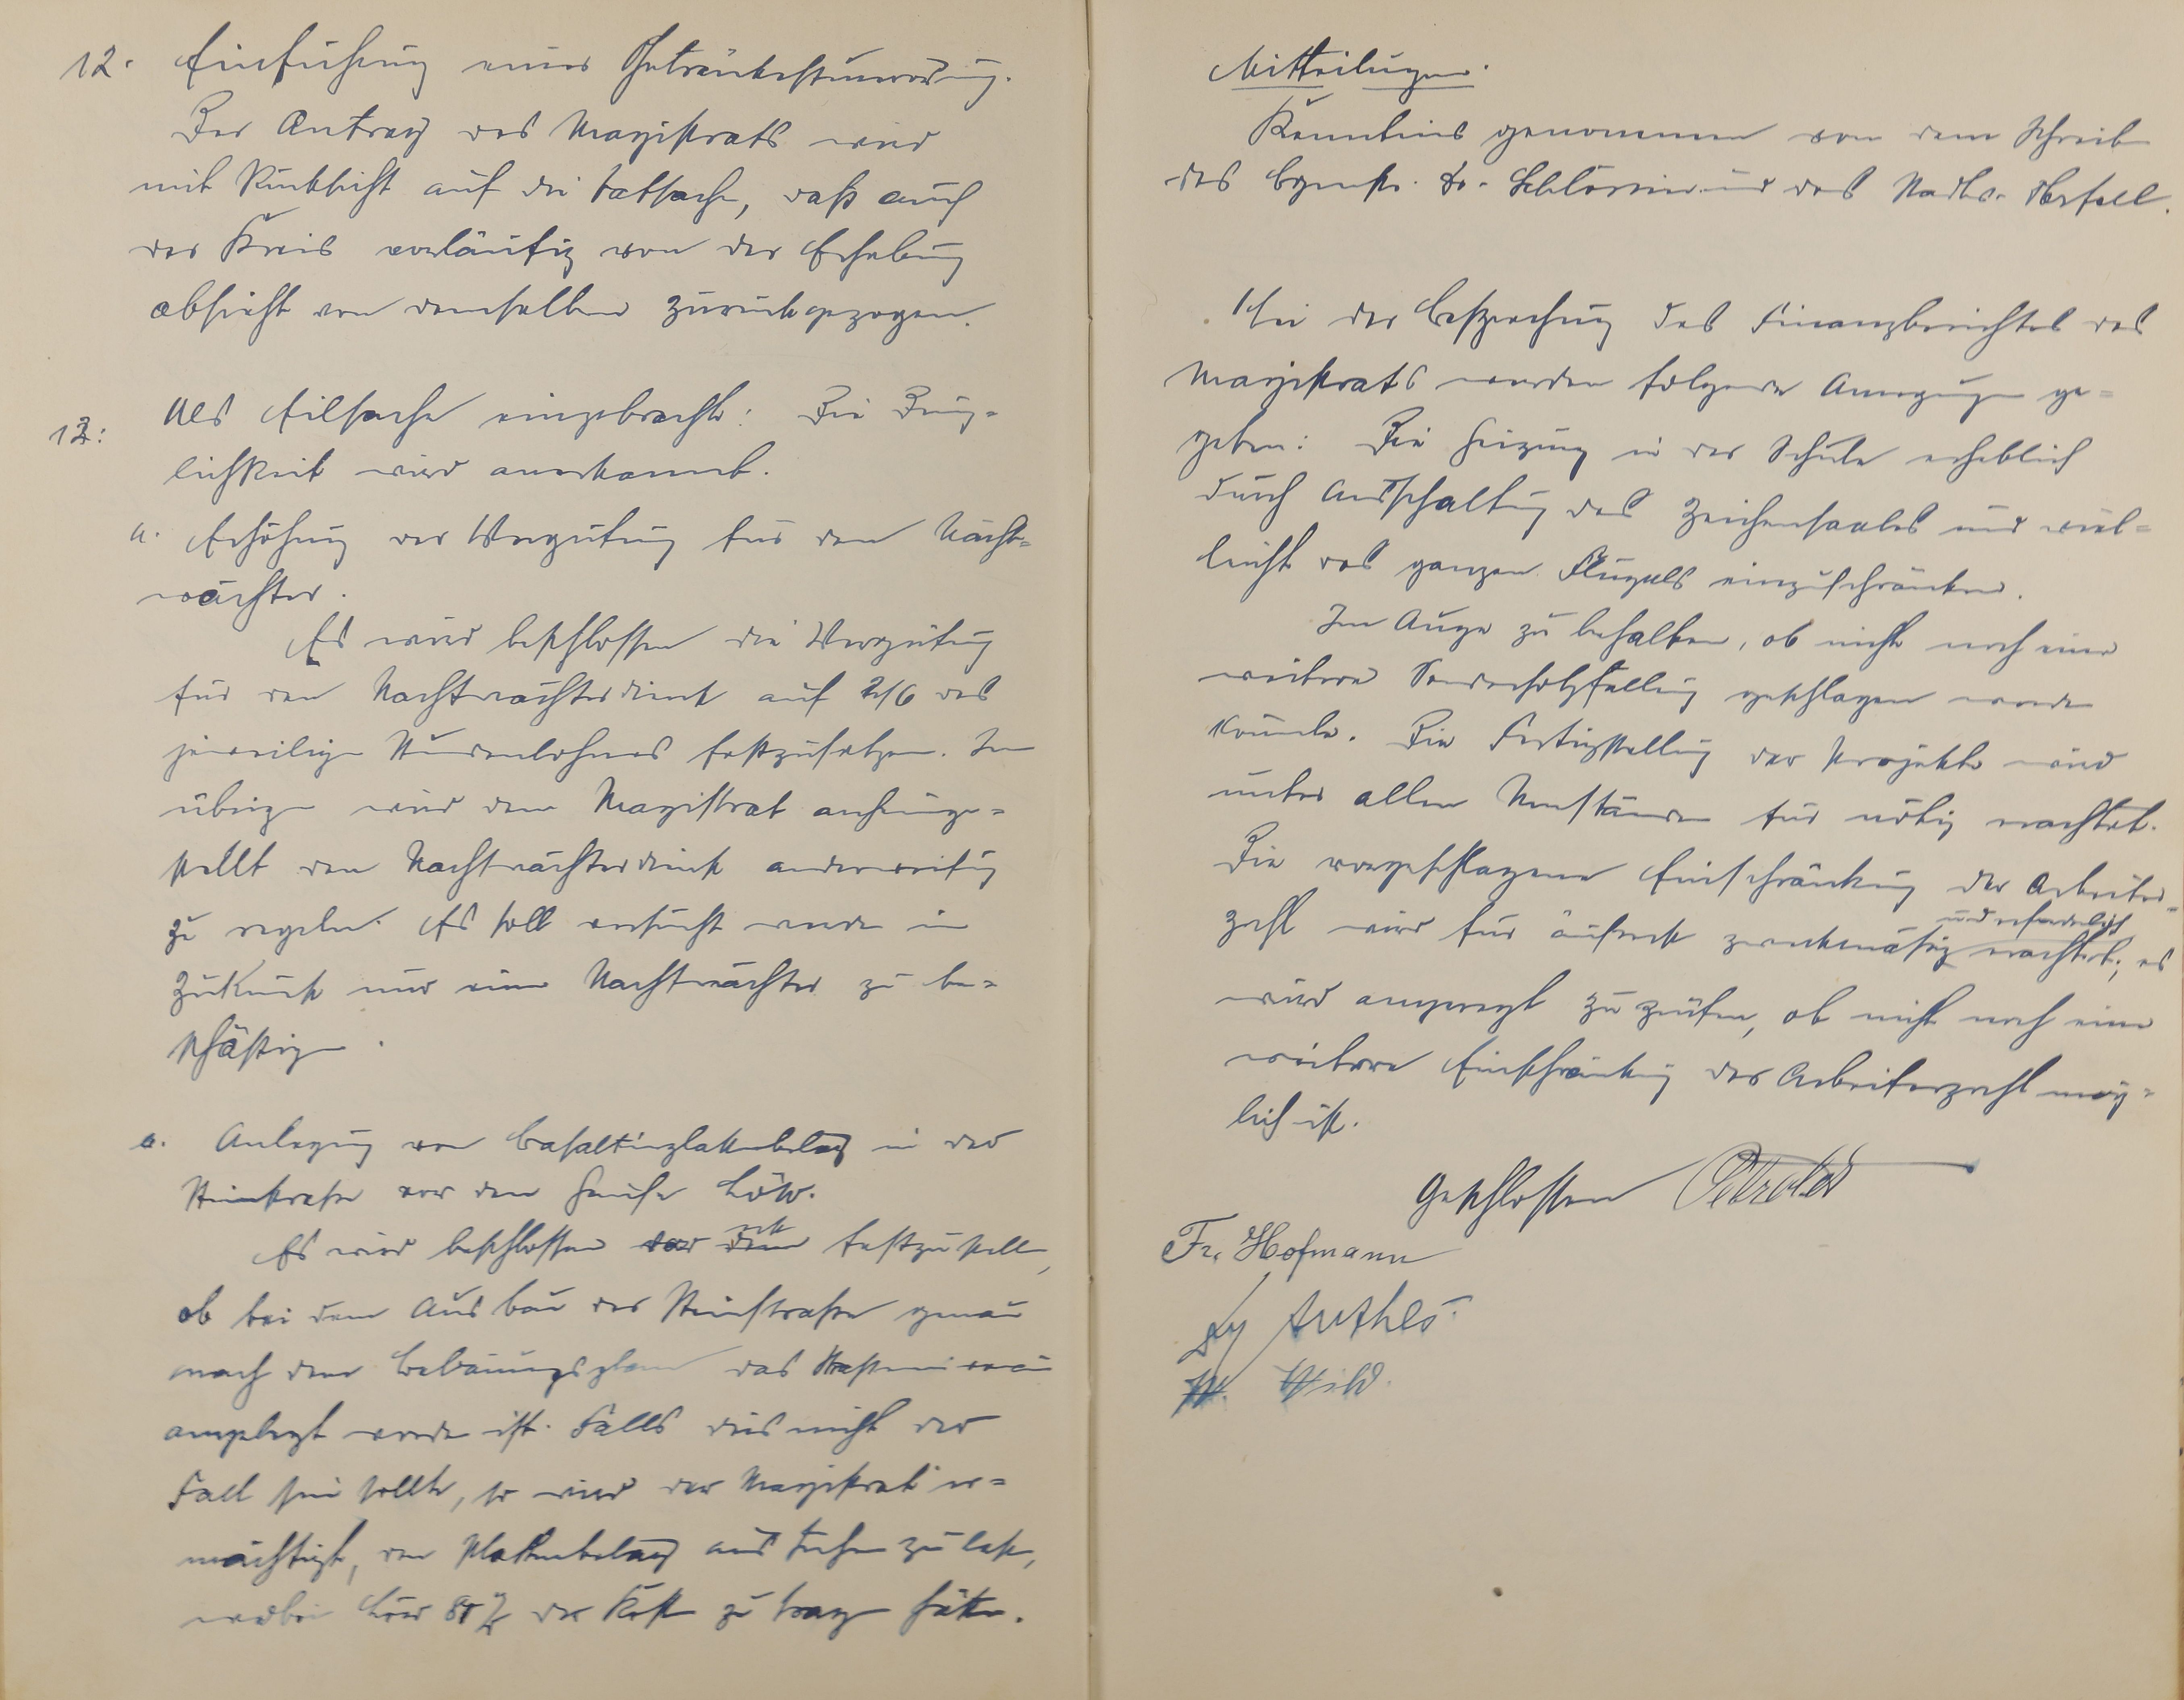 12. Einführung einer Getränkesteuerordnung.
Der Antrag des Magistrats wird
mit Rücksicht auf die Tatsache, daß auch
der Kreis vorläufig von der Erhebung
absieht von demselben zurückgezogen.
13: Als Eilsache eingebracht: Die Dring-
lichkeit wird anerkannt.
a. Erhöhung der Vergütung für den Nacht-
wächter.
Es wird beschlossen die Vergütung
für den Nachtwächterdienst auf 2/6 des
jeweiligen Stundenlohnes festzusetzen. Im
übrigen wird dem Magistrat anheimge-
stellt den Nachtwächterdienst anderweitig
zu regeln. Es soll versucht werden in
Zukunft nur einen Nachtwächter zu be-
schäftigen.
Anlegung von Basaltinplattenbelag in der
Steinstraße vor dem Hause Löw.
Es wird beschlossen festzustellen,
ob bei dem Ausbau der Steinstraße genau
nach dem Bebauungsplan das Straßenniveau
angelegt worden ist. Falls dies nicht der
Fall sein sollte, so wird der Magistrat er-
mächtigt, den Plattenbelag ausführen zu lassen,
wobei Löw der Kosten zu tragen hätte.
Mitteilungen.
Kenntnis genommen von dem Schreiben
des Bgmstr. Dr. und des
Bei der Besprechung des Finanzberichtes des
Magistrats wurden folgende Anregungen ge-
geben: Die Heizung in der Schule erheblich
durch Ausschaltung des Zeichensaales und viel-
leicht des ganzen Flügels einzuschränken.
Im Auge zu behalten, ob nicht noch eine
weitere Sonderholzfällung geschlagen werden
könnte. Die Fertigstellung der Projekte wird
unter allen Umständen für nötig erachtet.
Die vorgeschlagene Einschränkung der Arbeiter-
zahl wird für äußerst zweckmäßig und erforderlich erachtet; es
wird angeregt zu prüfen, ob nicht noch eine
weitere Einschränkung der Arbeiterzahl mög-
lich ist.
Geschlossen
Fr. Hofmann
Anthes
W. Wild